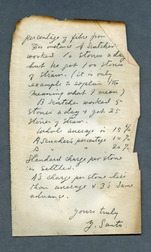 percentage of fibre from
For instance A scutcher
worked 10 stones a day
but he got 100 stone
of straw. (it is only
example to explain the
meaning what I mean)
B scutcher worked 5
stones a day & got 25
stones of straw.
Whole average is 15 %
A scutcher's percentage 10 %
B " " 20 %
Standard charge per stone
is settled.
A's charge per stone less
than average & B's same
advance.
Yours truly